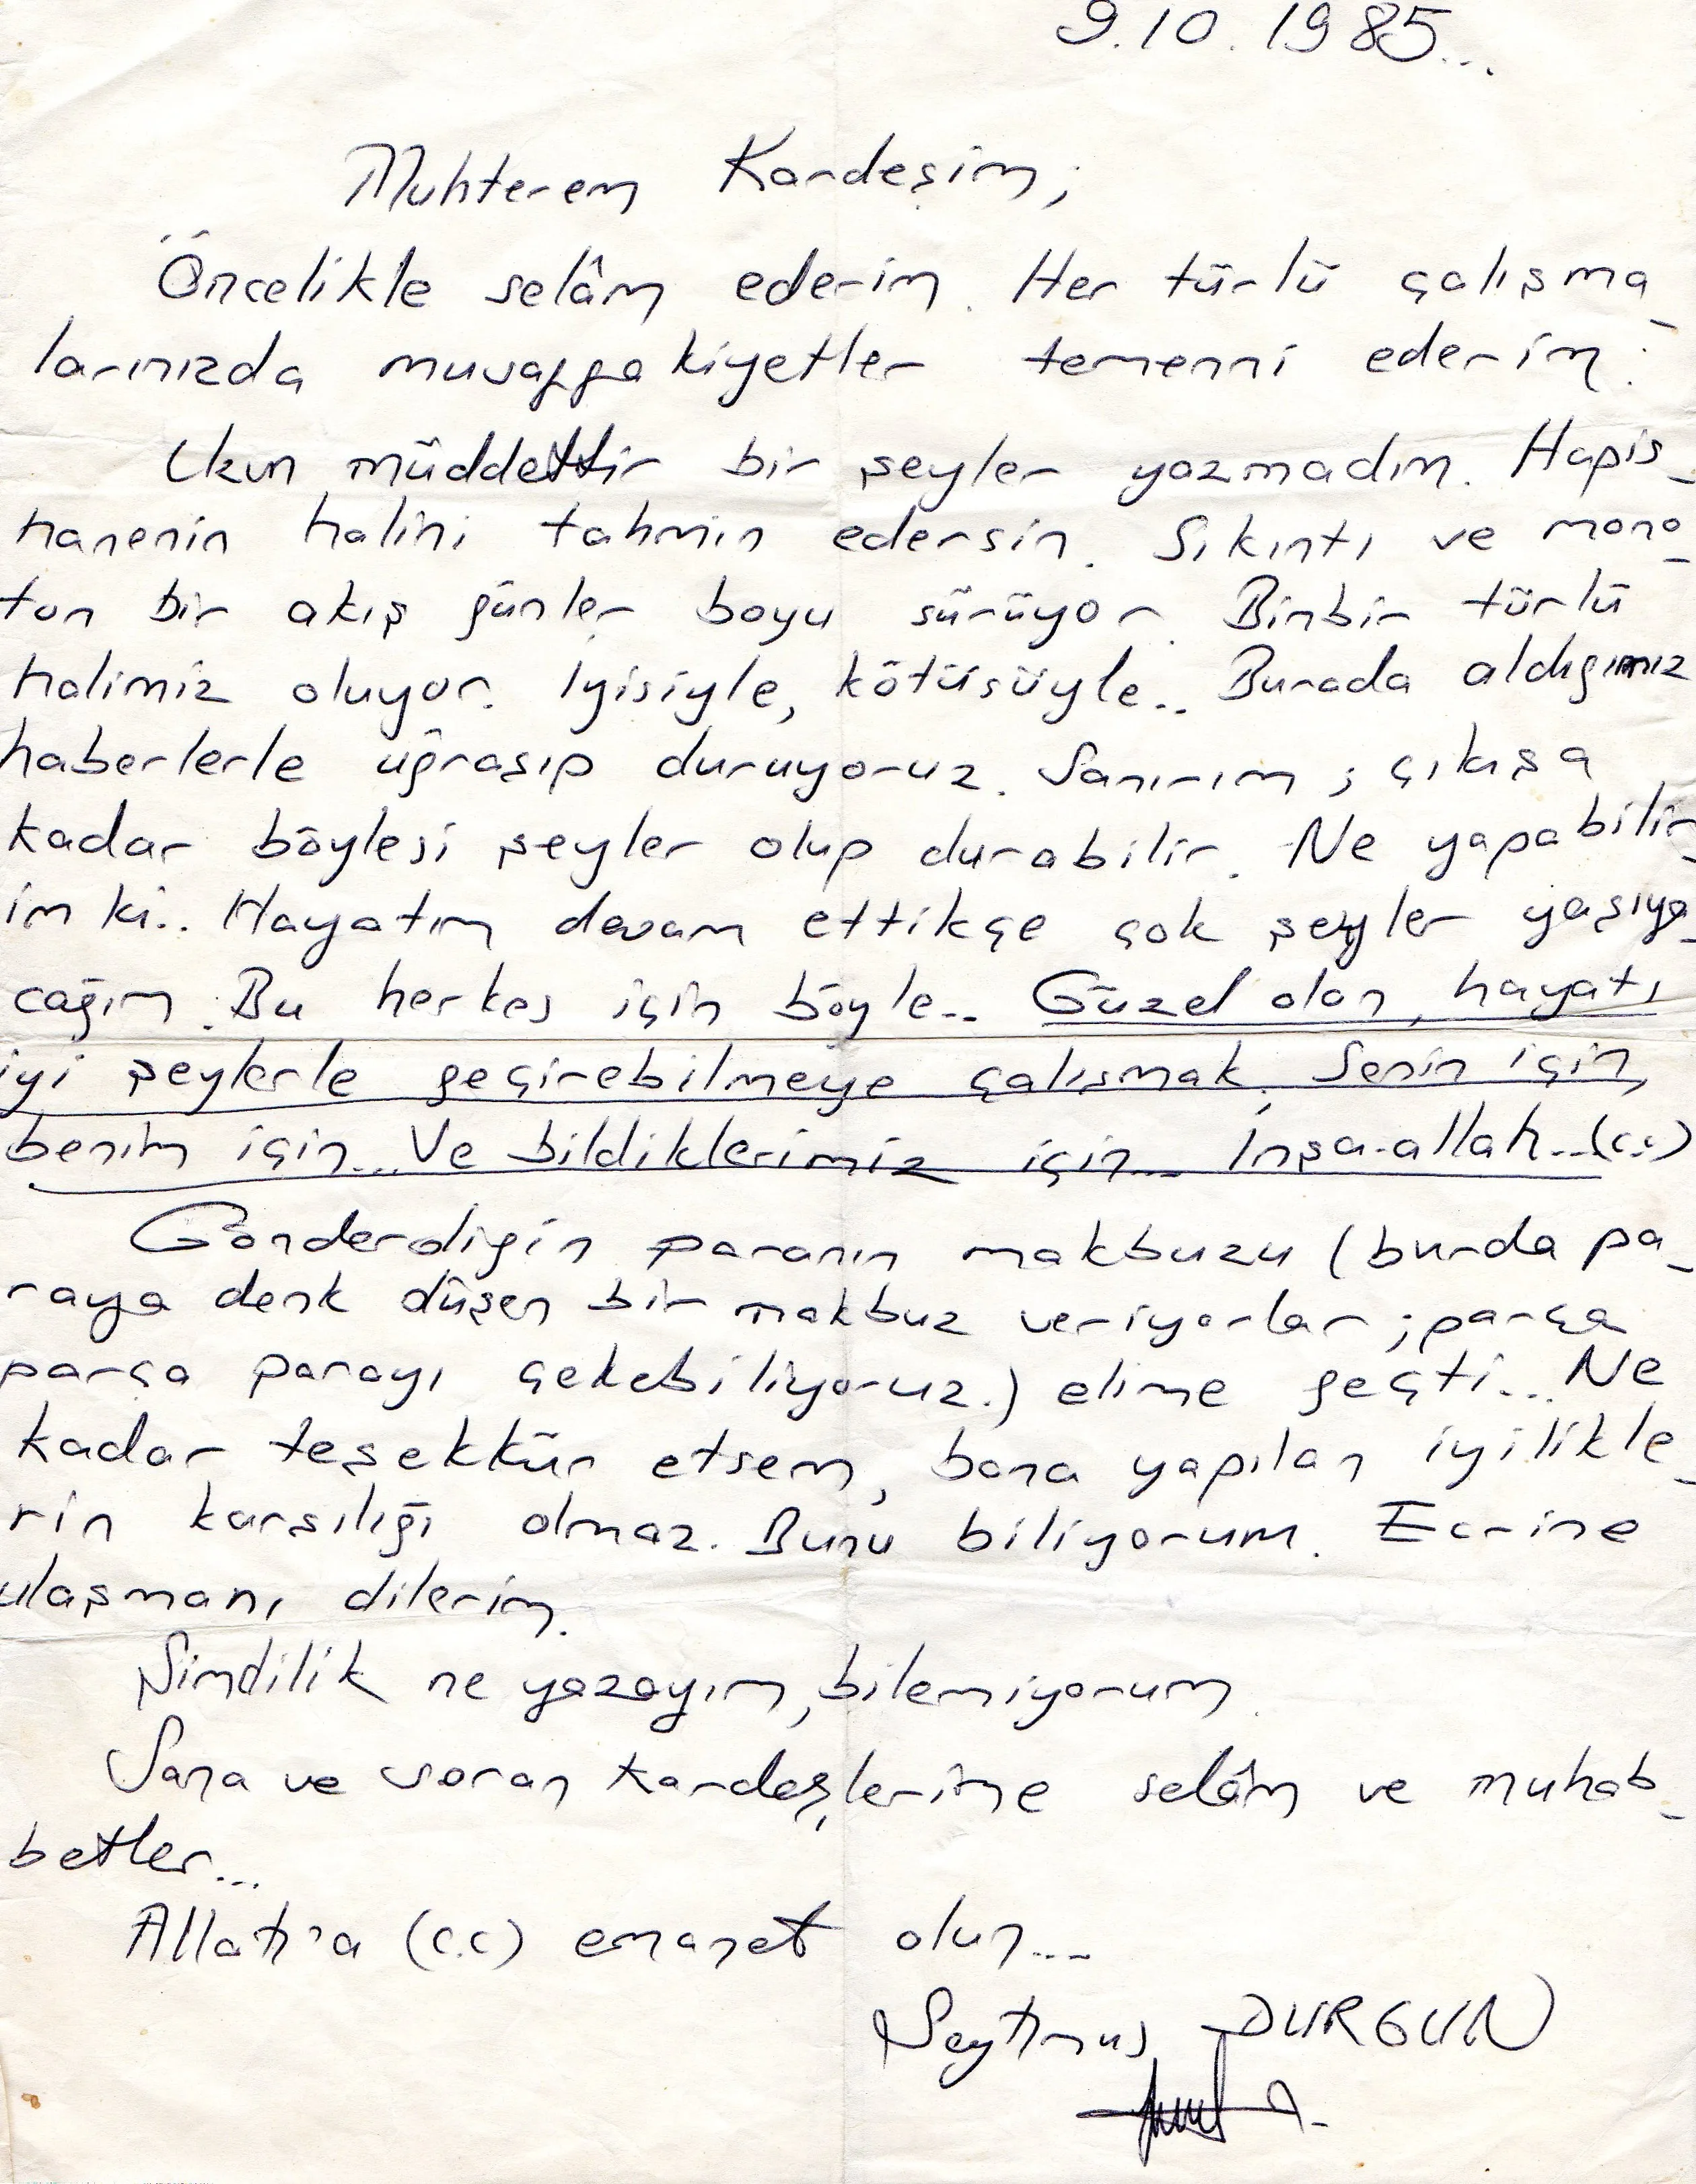 9.10.1985...
Muhterem Kardeşim;
Öncelikle selâm ederim. Her türlü çalışma_
larınızda muvaffakiyetler temenni ederim.
Uzun müddettir bir şeyler yazmadım. Hapis_
hanenin halini tahmin edersin. Sıkıntı ve mono_
ton bir akış günler boyu sürüyor. Binbir türlü
halimiz oluyor. İyisiyle, kötüsüyle.. Burada aldığımız
haberlerle uğraşıp duruyoruz. Sanırım; çıkışa
kadar böylesi şeyler olup durabilir. Ne yapabilir_
im ki.. Hayatım devam ettikçe çok şeyler yaşıya_
cağım. Bu herkes için böyle.. Güzel olan, hayatı
iyi şeylerle geçirebilmeye çalışmak. Senin için,
benim için... Ve bildiklerimiz için... İnşa-allah...(c.c)
Gönderdiğin paranın makbuzu (burda pa_
raya denk düşen bir makbuz veriyorlar; parça
parça parayı çekebiliyoruz.) elime geçti... Ne
kadar teşekkür etsem, bana yapılan iyilikle_
rin karşılığı olmaz. Bunu biliyorum. Ecrine
ulaşmanı dilerim.
Şimdilik ne yazayım, bilemiyorum.
Sana ve soran kardeşlerime selâm ve muhab_
betler...
Allah'a (c.c) emanet olun...
Şeyhmus DURGUN